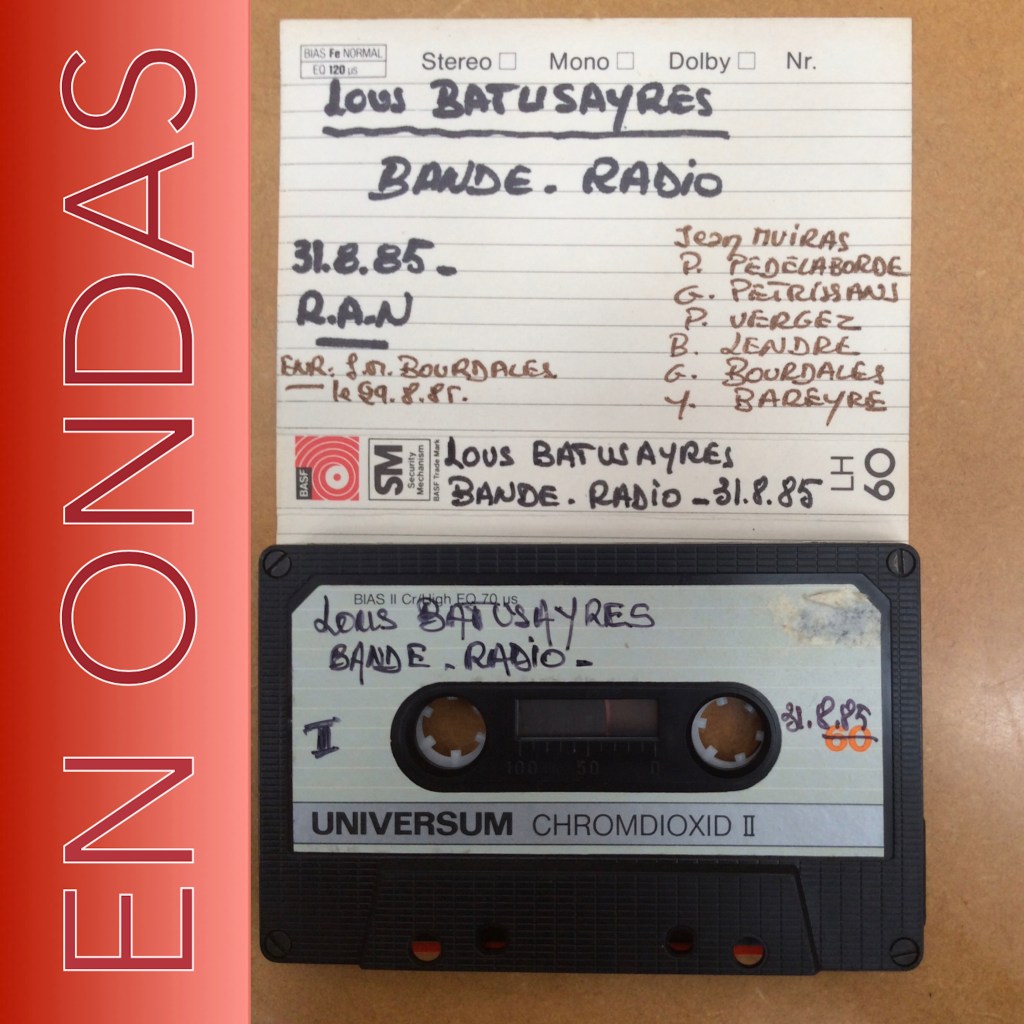 EN ONDAS
BIAS Fe NORMAL
EQ 120 µs
Stereo Mono Dolby Nr.
Lous BATUSAYRES
BANDE. RADiO
31.8.85-
R.A.N
ENR: J.M. BOURDALES
le 29.8.85.
Jean MUiRAS
P. PEDELABORDE
G. PETRISSANS
P. VERGEZ
B. LENDRE
G. BOURDALES
Y. BAREYRE
BASF
SM
Security
Mechanism
BASF Trade Mark
LOUS BATUSAYRES
BANDE. RADiO - 31.8.85
LH
60
BIAS II Cr/High EQ 70 µs
LOUS BATUSAYRES
BANDE - RADiO -
II
31.8.85
60
100 50 0
UNIVERSUM CHROMDIOXID II